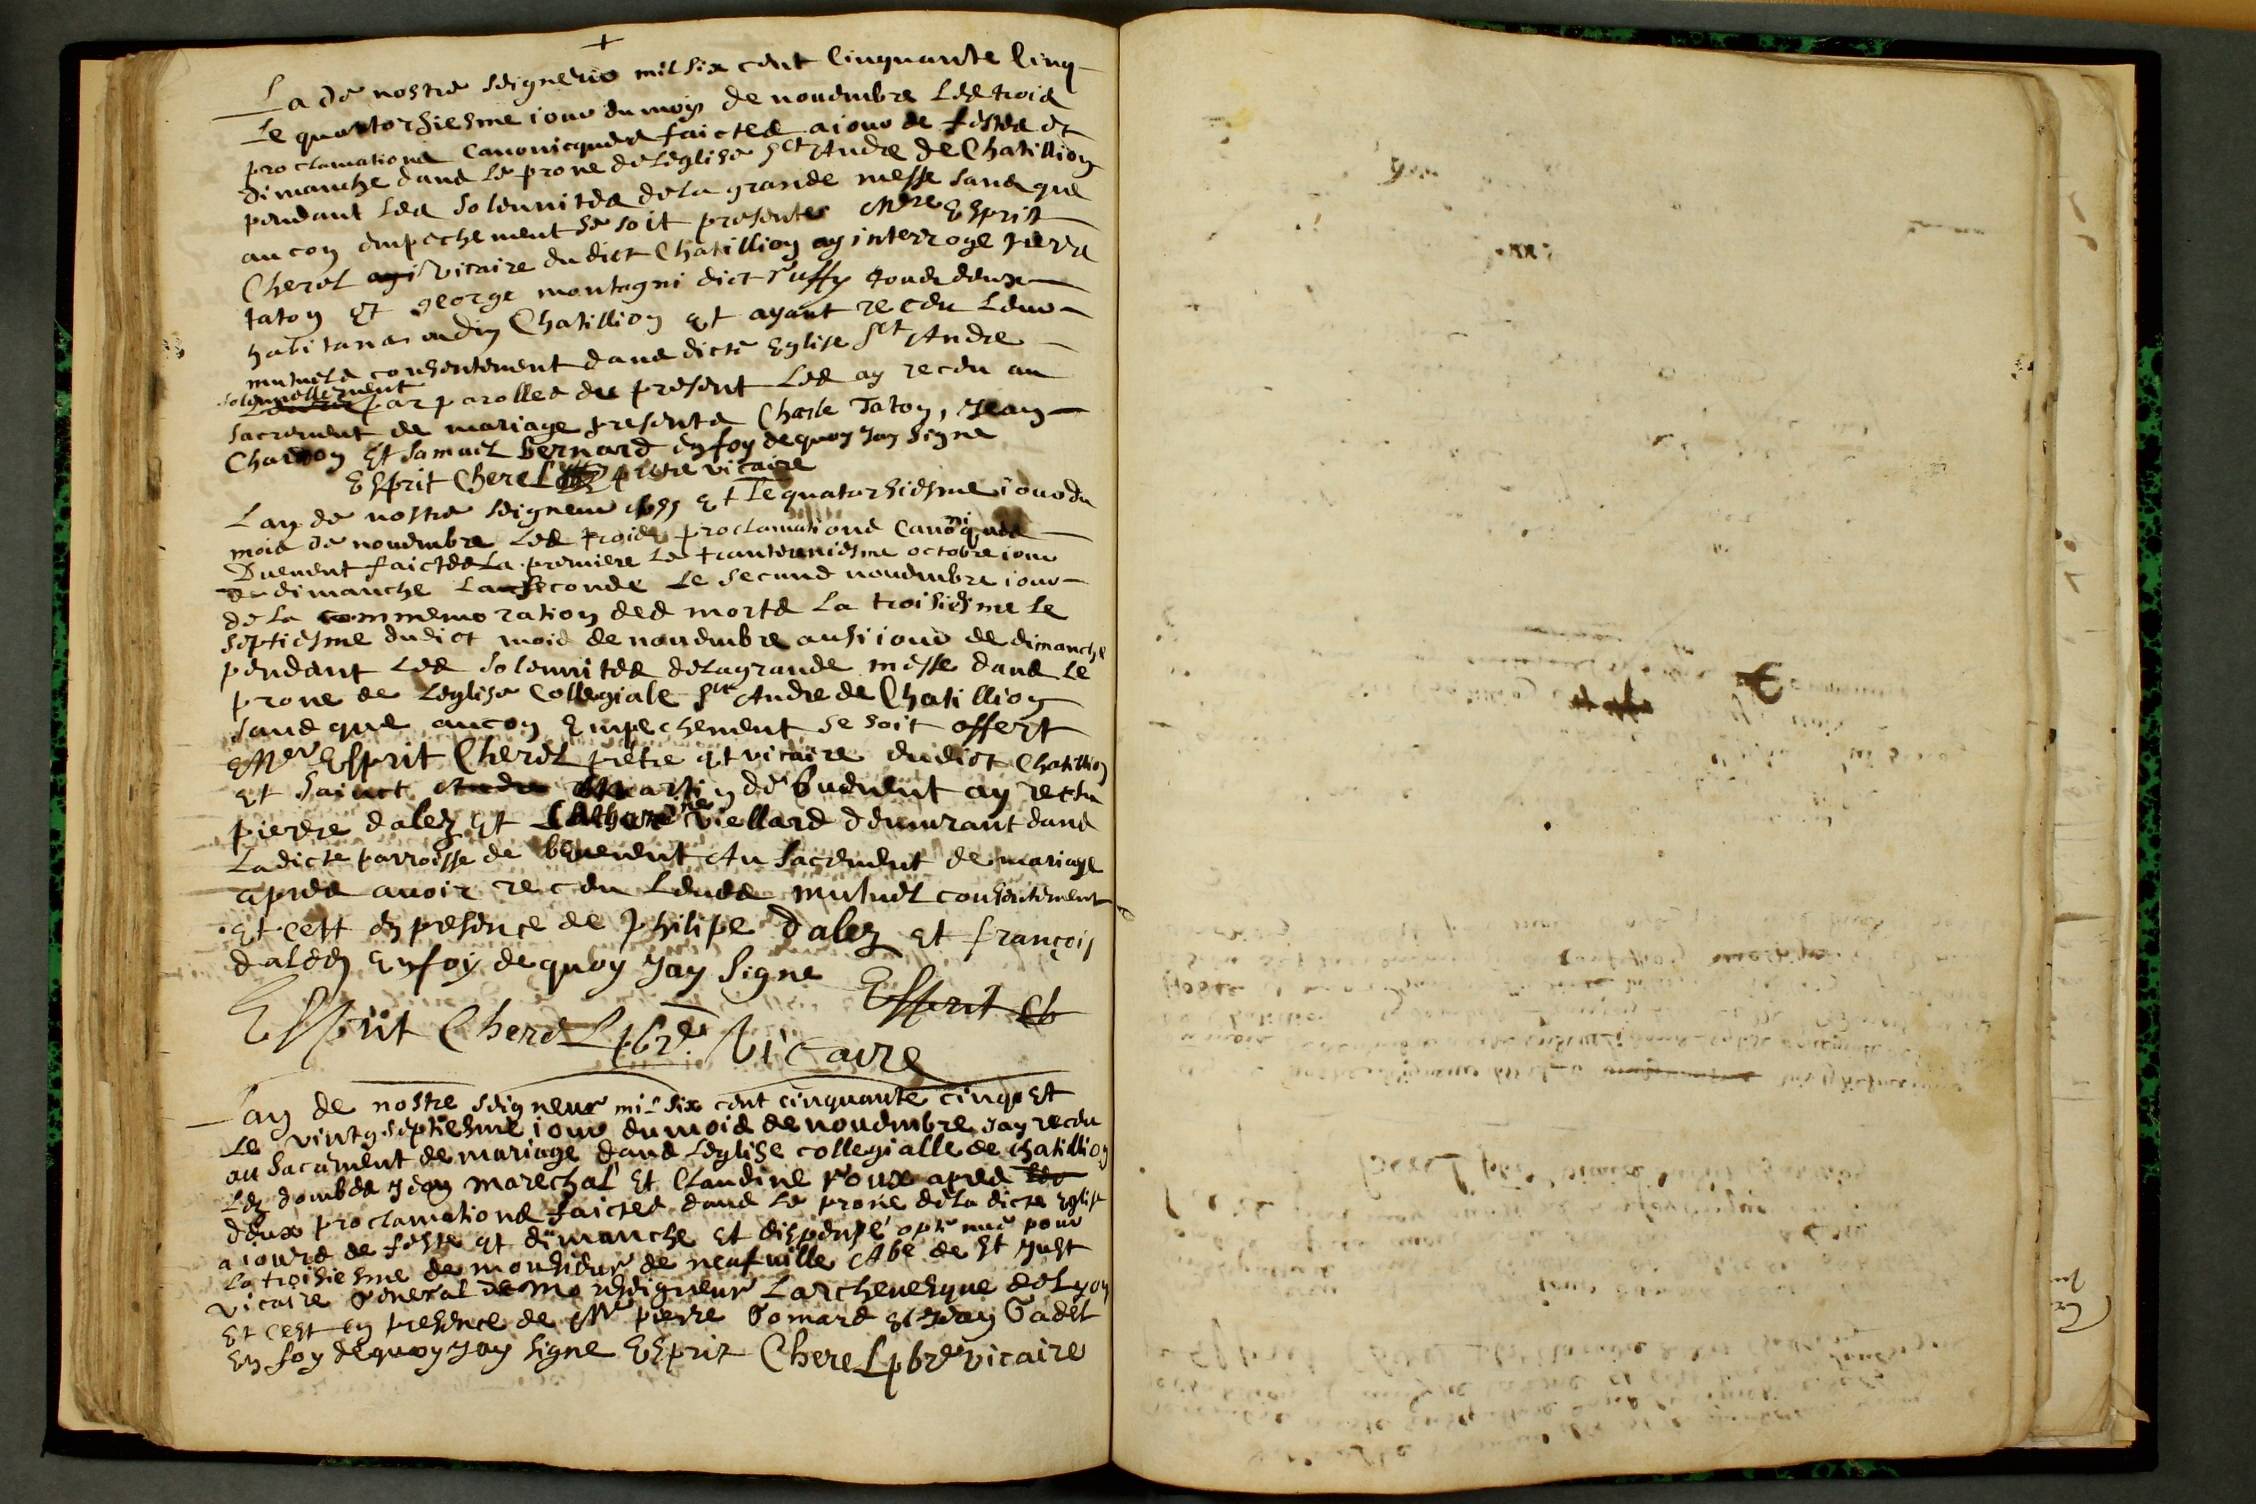 La de nostre seigneur mil six cent cinquante cinq
Le quattorhiesme iour du moys de nouembre Les trois
proclamations canonicques faictes a iour de festes et
dimanche dans le prone de leglise Sct Andre de Chatillion
pendant Les solennites de la grande messe sans que
aucon empechement se soit presentes Mre Esprit
Cherel vicaire du dict Chatillion ay interroge pierre
taton Et george montagni dict ruffy tous deux
habitans audin Chatillion et ayant receu Leur
mutuels consentement dans dicte Eglise Sct Andre
solennellement par parolles de present Les ay receu au
sacrement de mariage presents Charle Taton, Jean
Chardon Et Samuel bernard en foy de quoy Jay signe
Esprit Cherel pretre vicaire
Lan de nostre seigneur 1655 Et Le quatorhiesme iour du
mois de nouembre Les trois proclamations canoniques
Duement faictes La premiere Le tranteuniesme octobre iour
de dimanche La seconde Le second nouembre iour
de la commemoration des morts La troisiesme Le
septiesme dudict mois de nouembre ausi iour de dimanche
pendant Les solennites de la grande messe dans Le
prone de Leglise Collegiale Sct Andre de Chatillion
sans que aucon Empechement se soit offert
Mre Esprit Cherel pretre et vicaire dudict Chatillion
et sainct Martin de buenent ay receu
pierre dalez Et Catherine viellard demurant dans
La dicte parroisse de buenent Au sacrement de mariage
apres auoir receu Leurs mutuel consentement
Et cett en presence de philipe dalez et françois
dalez En foy de quoy Jay signe Esprit Ch
Esprit Cherel pbre Vicaire
Lan de nostre seigneur mil six cent cinquante cinq Et
Le vintg septiesme iour du mois de nouembre Jay receu
au sacrement de mariage dans Leglise collegialle de chatillion
Lez dombes Jean marechal Et Claudine roux apres les
deux proclamations faictes dans Le prone de la dicte Eglise
a iours de feste et dimanche Et dispense optenue pour
La troisiesme de monsieur de neufuille Abe de St Just
vicaire General de Monseigneur Larcheuesque de Lyon
Et cest en presence de Mre pierre Gomard et Jean Gadel
En foy de quoy Jay signe Esprit Cherel pbre vicaire